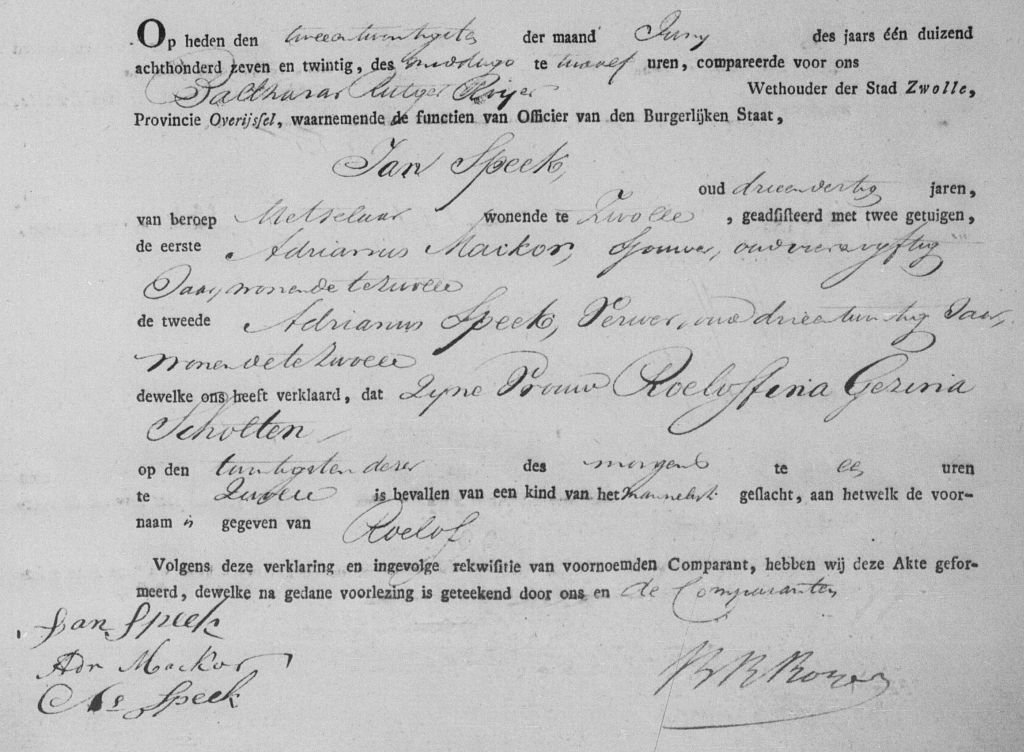 Op heden den tweeentwintigsten der maand Juny des jaars één duizend
achthonderd zeven en twintig, des middags te twaalf uren, compareerde voor ons
Balthazar Rutger Wethouder der Stad Zwolle,
Provincie Overijssel, waarnemende de functien van Officier van den Burgerlijken Staat,
Jan Speek,
oud drieendertig jaren,
van beroep Metselaar wonende te Zwolle, geadsisteerd met twee getuigen,
de eerste Adrianus Mackor, oud vierenvyftig
Jaar, wonende te Zwolle
de tweede Adrianus Speek, Verwer, oud drieentwintig Jaar,
wonende te Zwolle
dewelke ons heeft verklaard, dat Zyne Vrouw Roeloffina Gezina
Scholten
op den twintigsten dezer des morgens te uren
te Zwolle is bevallen van een kind van het mannelyk geslacht, aan hetwelk de voor-
naam is gegeven van Roelof
Volgens deze verklaring en ingevolge rekwisitie van voornoemden Comparant, hebben wij deze Akte gefor-
meerd, dewelke na gedane voorlezing is geteekend door ons en de Comparanten
Jan Speek
Adr Mackor
As Speek